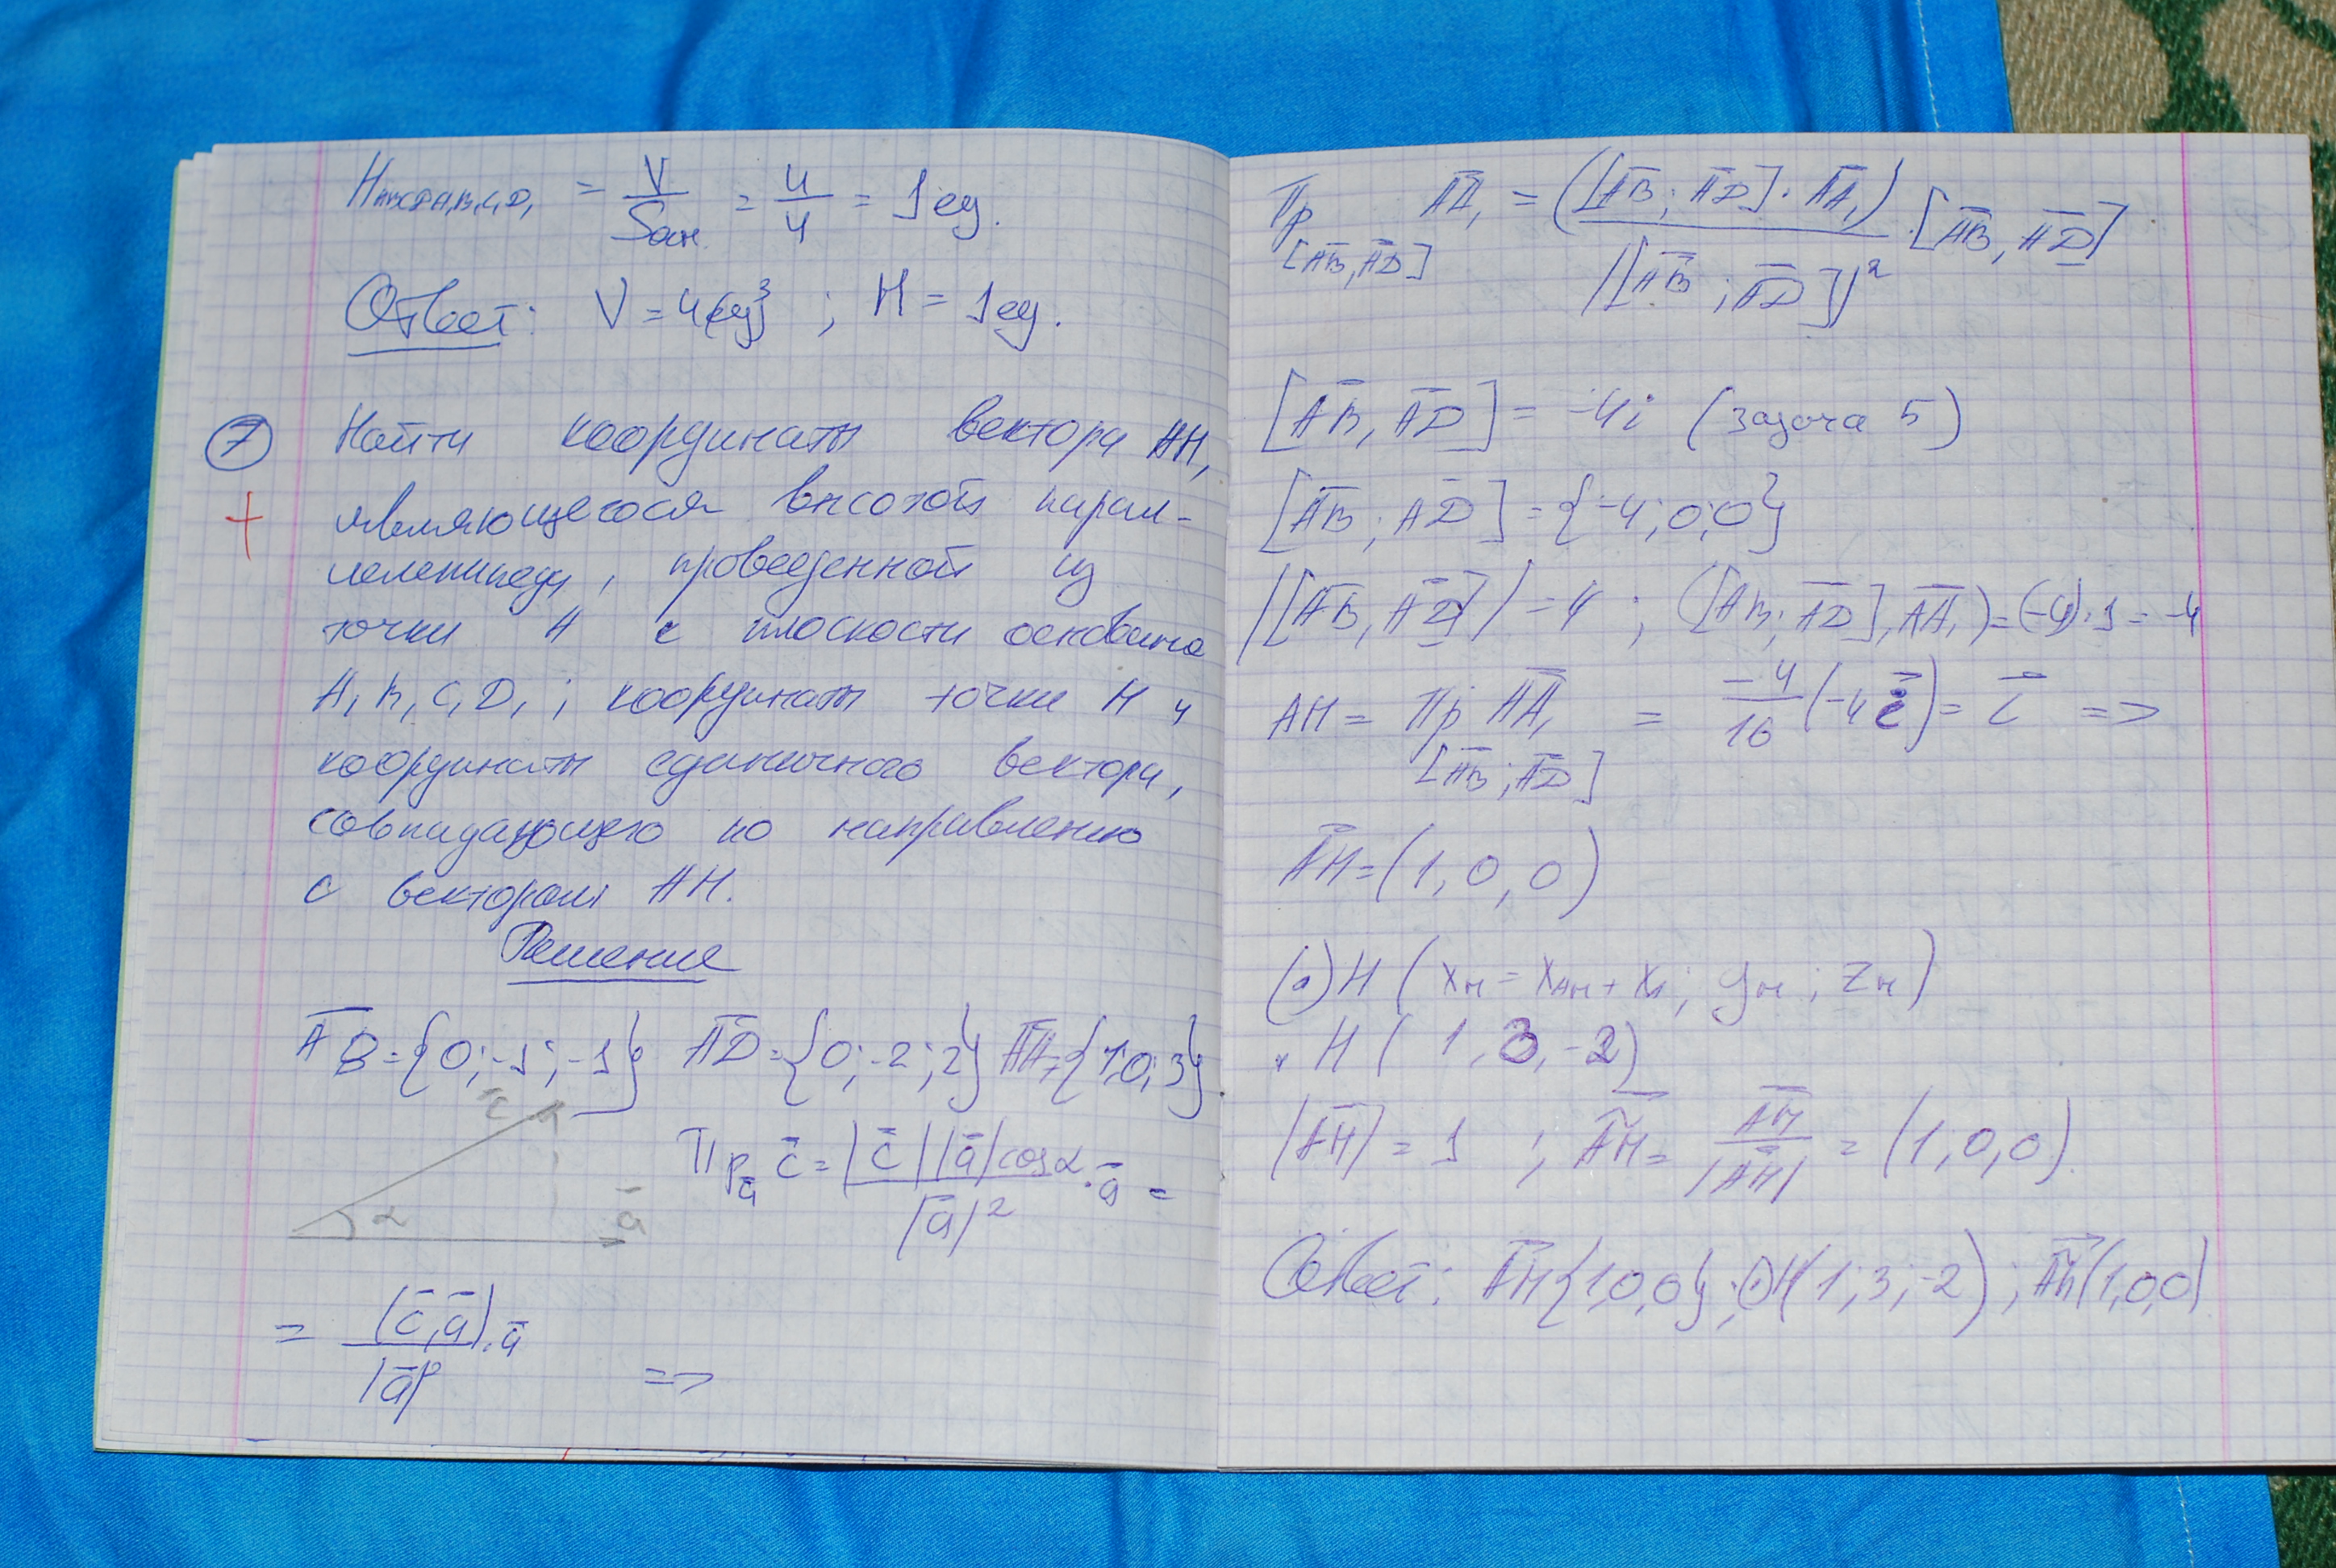 H ABCDA₁B₁C₁D₁ = V/Sосн. = 4/4 = 1 ед.
Ответ: V = 4(ед)³ ; H = 1 ед.
7 Найти координаты вектора AH,
+ являющегося высотой парал-
лелепипеда, проведенной из
точки A к плоскости основания
A₁B₁C₁D₁ ; координаты точки H и
координаты единичного вектора,
совпадающего по направлению
с вектором AH.
Решение
A̅B̅ = {0; -1; -1} A̅D̅ = {0; -2; 2} A̅A̅₁ = {1; 0; 3}
c̅
Пр a̅ c̅ = |c̅||a̅|cosα / |a̅|² · a̅ =
α a̅
= (c̅, a̅) / |a̅|² · a̅ =>
Пр [A̅B̅, A̅D̅] A̅A̅₁ = ([A̅B̅; A̅D̅] · A̅A̅₁) / |[A̅B̅; A̅D̅]|² · [A̅B̅, A̅D̅]
[A̅B̅, A̅D̅] = -4i (задача 5)
[A̅B̅; A̅D̅] = {-4; 0; 0}
|[A̅B̅, A̅D̅]| = 4 ; ([A̅B̅; A̅D̅], A̅A̅₁) = (-4)·1 = -4
AH = Пр [A̅B̅; A̅D̅] A̅A̅₁ = -4/16 (-4i̅) = i̅ =>
A̅H̅ = (1, 0, 0)
(·) H ( xн = xAH + xA ; yн ; zн )
H ( 1, 3, -2)
|A̅H̅| = 1 ; A̅H̅ = A̅H̅/|A̅H̅| = (1, 0, 0)
Ответ: A̅H̅ {1,0,0} ; (·) H (1; 3; -2) ; A̅h̅ (1,0,0)